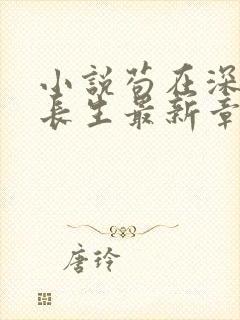 小説苟在深
長生最新章
唐玲